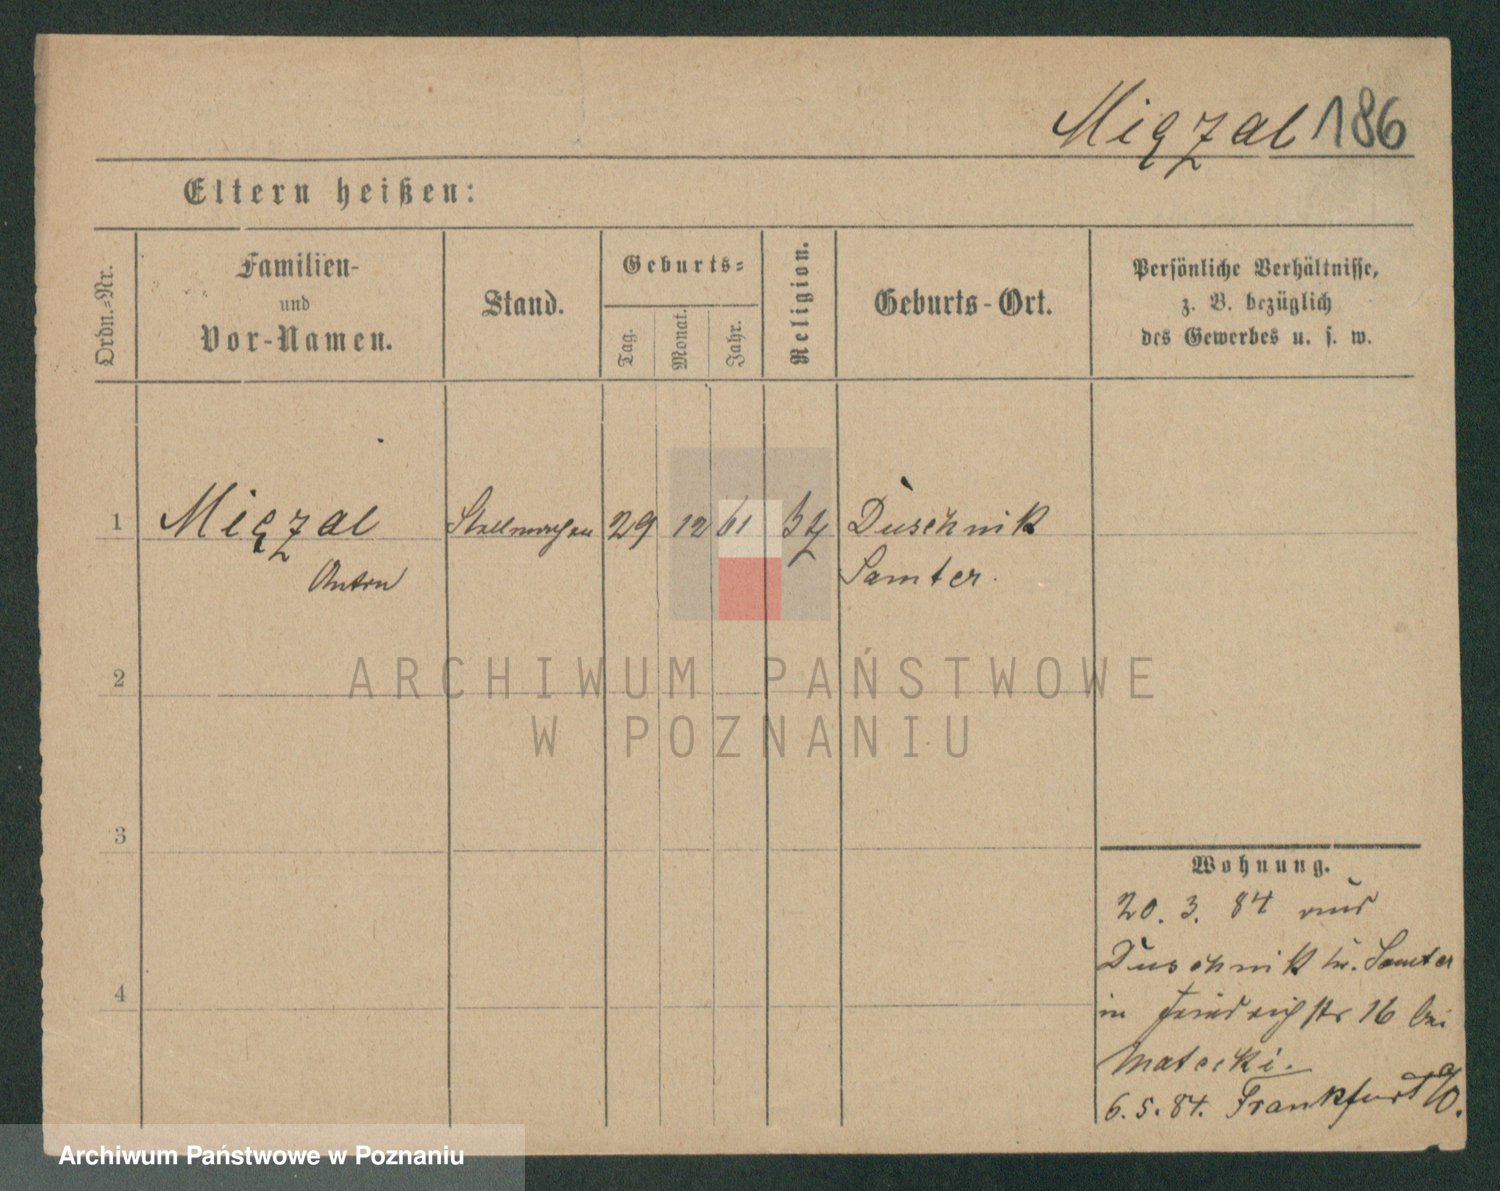 Mięzal 186
Eltern heißen:
Ordn.-Nr.
Familien-
und
Vor-Namen.
Stand.
Geburts-
Tag.
Monat.
Jahr.
Religion.
Geburts-Ort.
Persönliche Verhältnisse,
z. B. bezüglich
des Gewerbes u. s. w.
1 Mięzal 29 12 61 Duschnik
Anton Samter.
2
3
4
Wohnung.
20. 3. 84 aus
Duschnik Kr. Samter
in Friedrichstr 16 bei
Matecki.
6. 5. 84. Frankfurt a/O.
ARCHIWUM PAŃSTWOWE
W POZNANIU
Archiwum Państwowe w Poznaniu